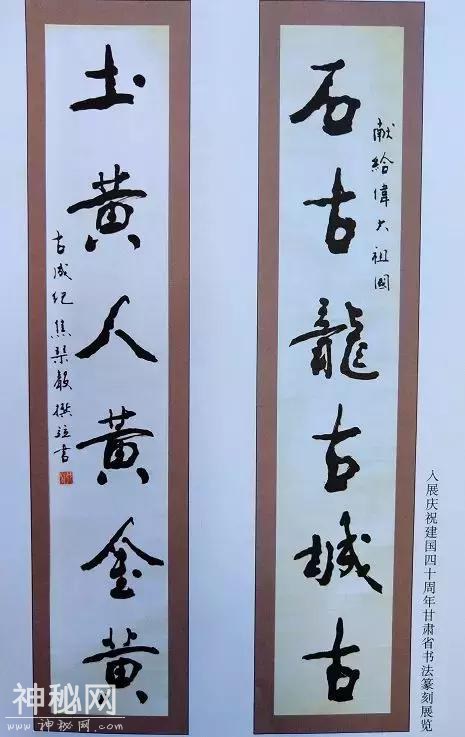 入展庆祝建国四十周年甘肃省书法篆刻展览
献給偉大祖國
石古龍古城古
土黄人黄金黄
古成纪焦撰書
神秘网
www.神秘网.com